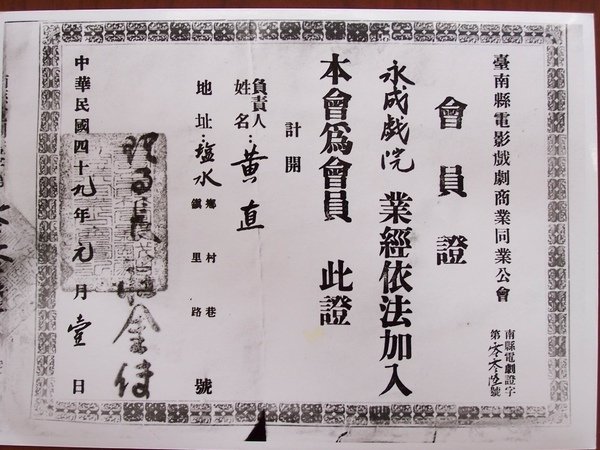 臺南縣電影戲劇商業同業公會
南縣電劇證字
第零零陸號
會員證
永成戲院 業經依法加入
本會為會員 此證
計開
負責人
姓名：黃直
地址：塩水 鄉鎮 村里 巷路 號
理事長 金
中華民國四十九年元月壹日